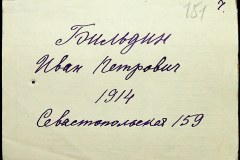 151
7.
Бильдин
Иван Петрович
1914
Севастопольская 159